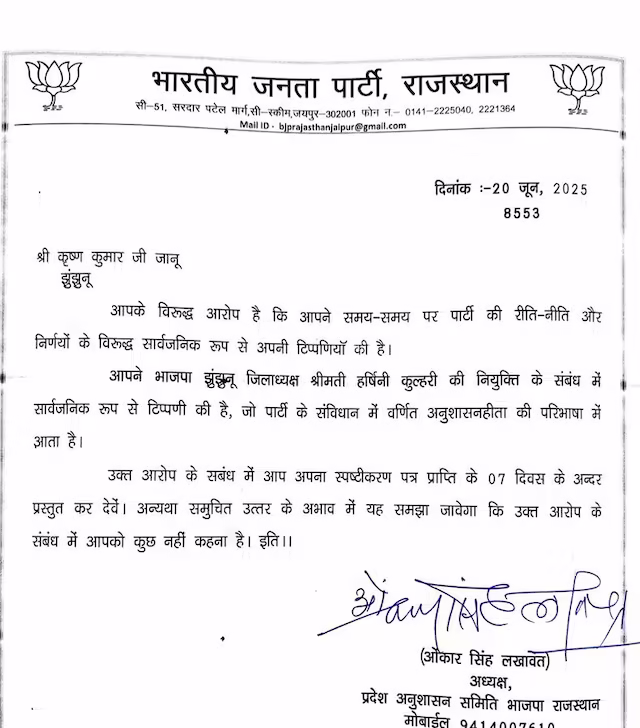 भारतीय जनता पार्टी, राजस्थान
सी–51, सरदार पटेल मार्ग,सी–स्कीम,जयपुर–302001 फोन न.– 0141–2225040, 2221364
Mail ID - bjprajasthanjaipur@gmail.com
दिनांक :–20 जून, 2025
8553
श्री कृष्ण कुमार जी जानू
झुंझुनू
आपके विरूद्ध आरोप है कि आपने समय–समय पर पार्टी की रीति–नीति और
निर्णयों के विरूद्ध सार्वजनिक रूप से अपनी टिप्पणियाँ की है।
आपने भाजपा झुंझुनू जिलाध्यक्ष श्रीमती हर्षिनी कुल्हरी की नियुक्ति के संबंध में
सार्वजनिक रूप से टिप्पणी की है, जो पार्टी के संविधान में वर्णित अनुशासनहीता की परिभाषा में
आता है।
उक्त आरोप के सबंध में आप अपना स्पष्टीकरण पत्र प्राप्ति के 07 दिवस के अन्दर
प्रस्तुत कर देवें। अन्यथा समुचित उत्तर के अभाव में यह समझा जावेगा कि उक्त आरोप के
संबंध में आपको कुछ नहीं कहना है। इति।।
(ओंकार सिंह लखावत)
अध्यक्ष,
प्रदेश अनुशासन समिति भाजपा राजस्थान
मोबाईल